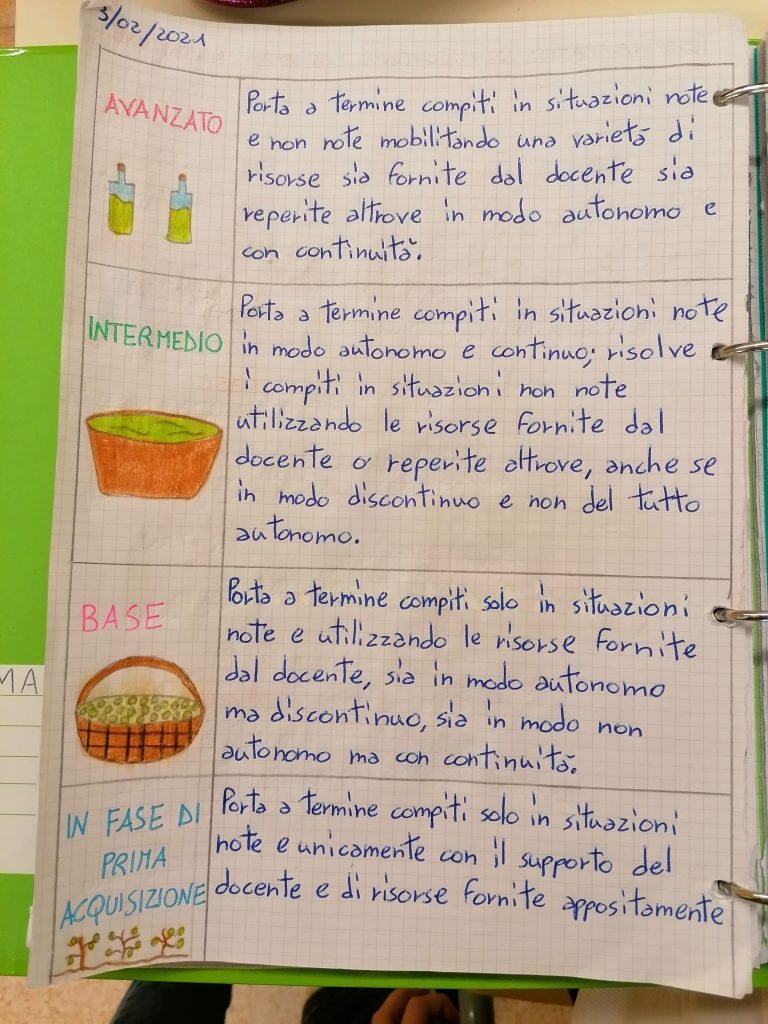 3/02/2021
AVANZATO
Porta a termine compiti in situazioni note
e non note mobilitando una varietà di
risorse sia fornite dal docente sia
reperite altrove in modo autonomo e
con continuità.
INTERMEDIO
Porta a termine compiti in situazioni note
in modo autonomo e continuo; risolve
i compiti in situazioni non note
utilizzando le risorse fornite dal
docente o reperite altrove, anche se
in modo discontinuo e non del tutto
autonomo.
BASE
Porta a termine compiti solo in situazioni
note e utilizzando le risorse fornite
dal docente, sia in modo autonomo
ma discontinuo, sia in modo non
autonomo ma con continuità.
IN FASE DI
PRIMA
ACQUISIZIONE
Porta a termine compiti solo in situazioni
note e unicamente con il supporto del
docente e di risorse fornite appositamente
MA